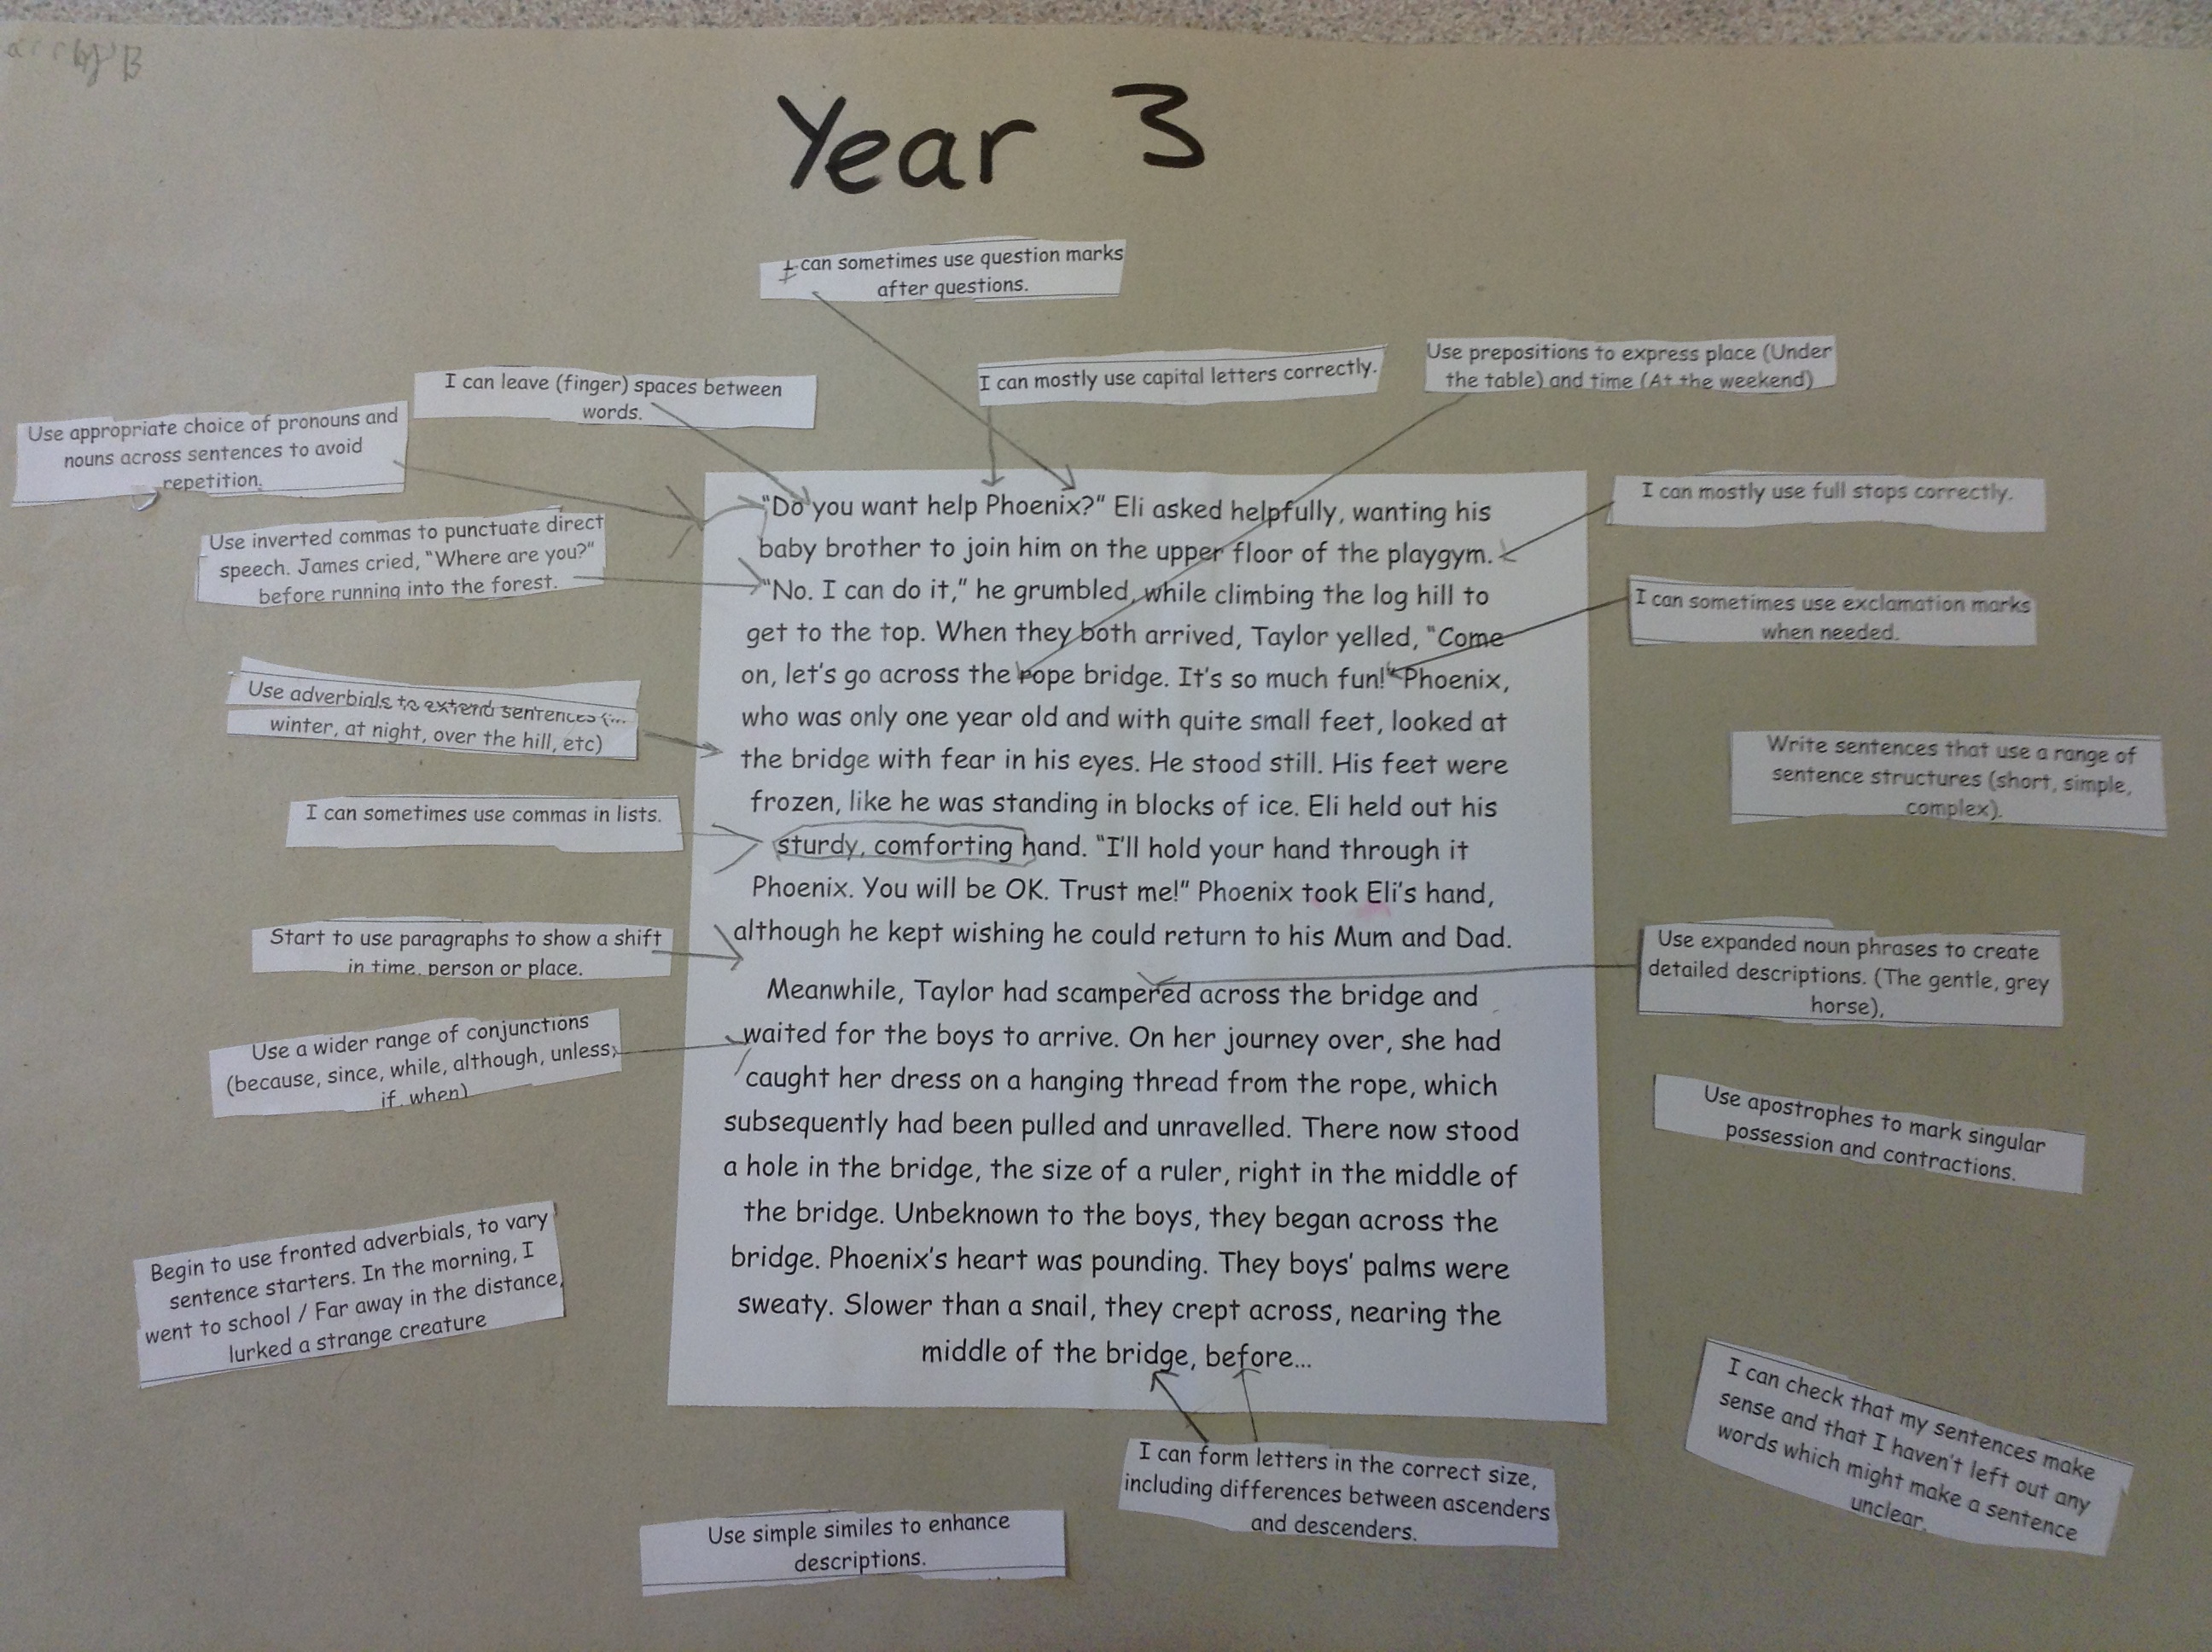 Year 3
I can sometimes use question marks
after questions.
I can leave (finger) spaces between
words.
I can mostly use capital letters correctly.
Use prepositions to express place (Under
the table) and time (At the weekend)
Use appropriate choice of pronouns and
nouns across sentences to avoid
repetition.
Use inverted commas to punctuate direct
speech. James cried, "Where are you?"
before running into the forest.
Use adverbials to extend sentences (...
winter, at night, over the hill, etc)
I can sometimes use commas in lists.
Start to use paragraphs to show a shift
in time, person or place.
Use a wider range of conjunctions
(because, since, while, although, unless,
if, when)
Begin to use fronted adverbials, to vary
sentence starters. In the morning, I
went to school / Far away in the distance,
lurked a strange creature
"Do you want help Phoenix?" Eli asked helpfully, wanting his
baby brother to join him on the upper floor of the playgym.
"No. I can do it," he grumbled, while climbing the log hill to
get to the top. When they both arrived, Taylor yelled, "Come
on, let's go across the rope bridge. It's so much fun!" Phoenix,
who was only one year old and with quite small feet, looked at
the bridge with fear in his eyes. He stood still. His feet were
frozen, like he was standing in blocks of ice. Eli held out his
sturdy, comforting hand. "I'll hold your hand through it
Phoenix. You will be OK. Trust me!" Phoenix took Eli's hand,
although he kept wishing he could return to his Mum and Dad.
Meanwhile, Taylor had scampered across the bridge and
waited for the boys to arrive. On her journey over, she had
caught her dress on a hanging thread from the rope, which
subsequently had been pulled and unravelled. There now stood
a hole in the bridge, the size of a ruler, right in the middle of
the bridge. Unbeknown to the boys, they began across the
bridge. Phoenix's heart was pounding. They boys' palms were
sweaty. Slower than a snail, they crept across, nearing the
middle of the bridge, before...
I can mostly use full stops correctly.
I can sometimes use exclamation marks
when needed.
Write sentences that use a range of
sentence structures (short, simple,
complex).
Use expanded noun phrases to create
detailed descriptions. (The gentle, grey
horse),
Use apostrophes to mark singular
possession and contractions.
I can check that my sentences make
sense and that I haven't left out any
words which might make a sentence
unclear.
I can form letters in the correct size,
including differences between ascenders
and descenders.
Use simple similes to enhance
descriptions.